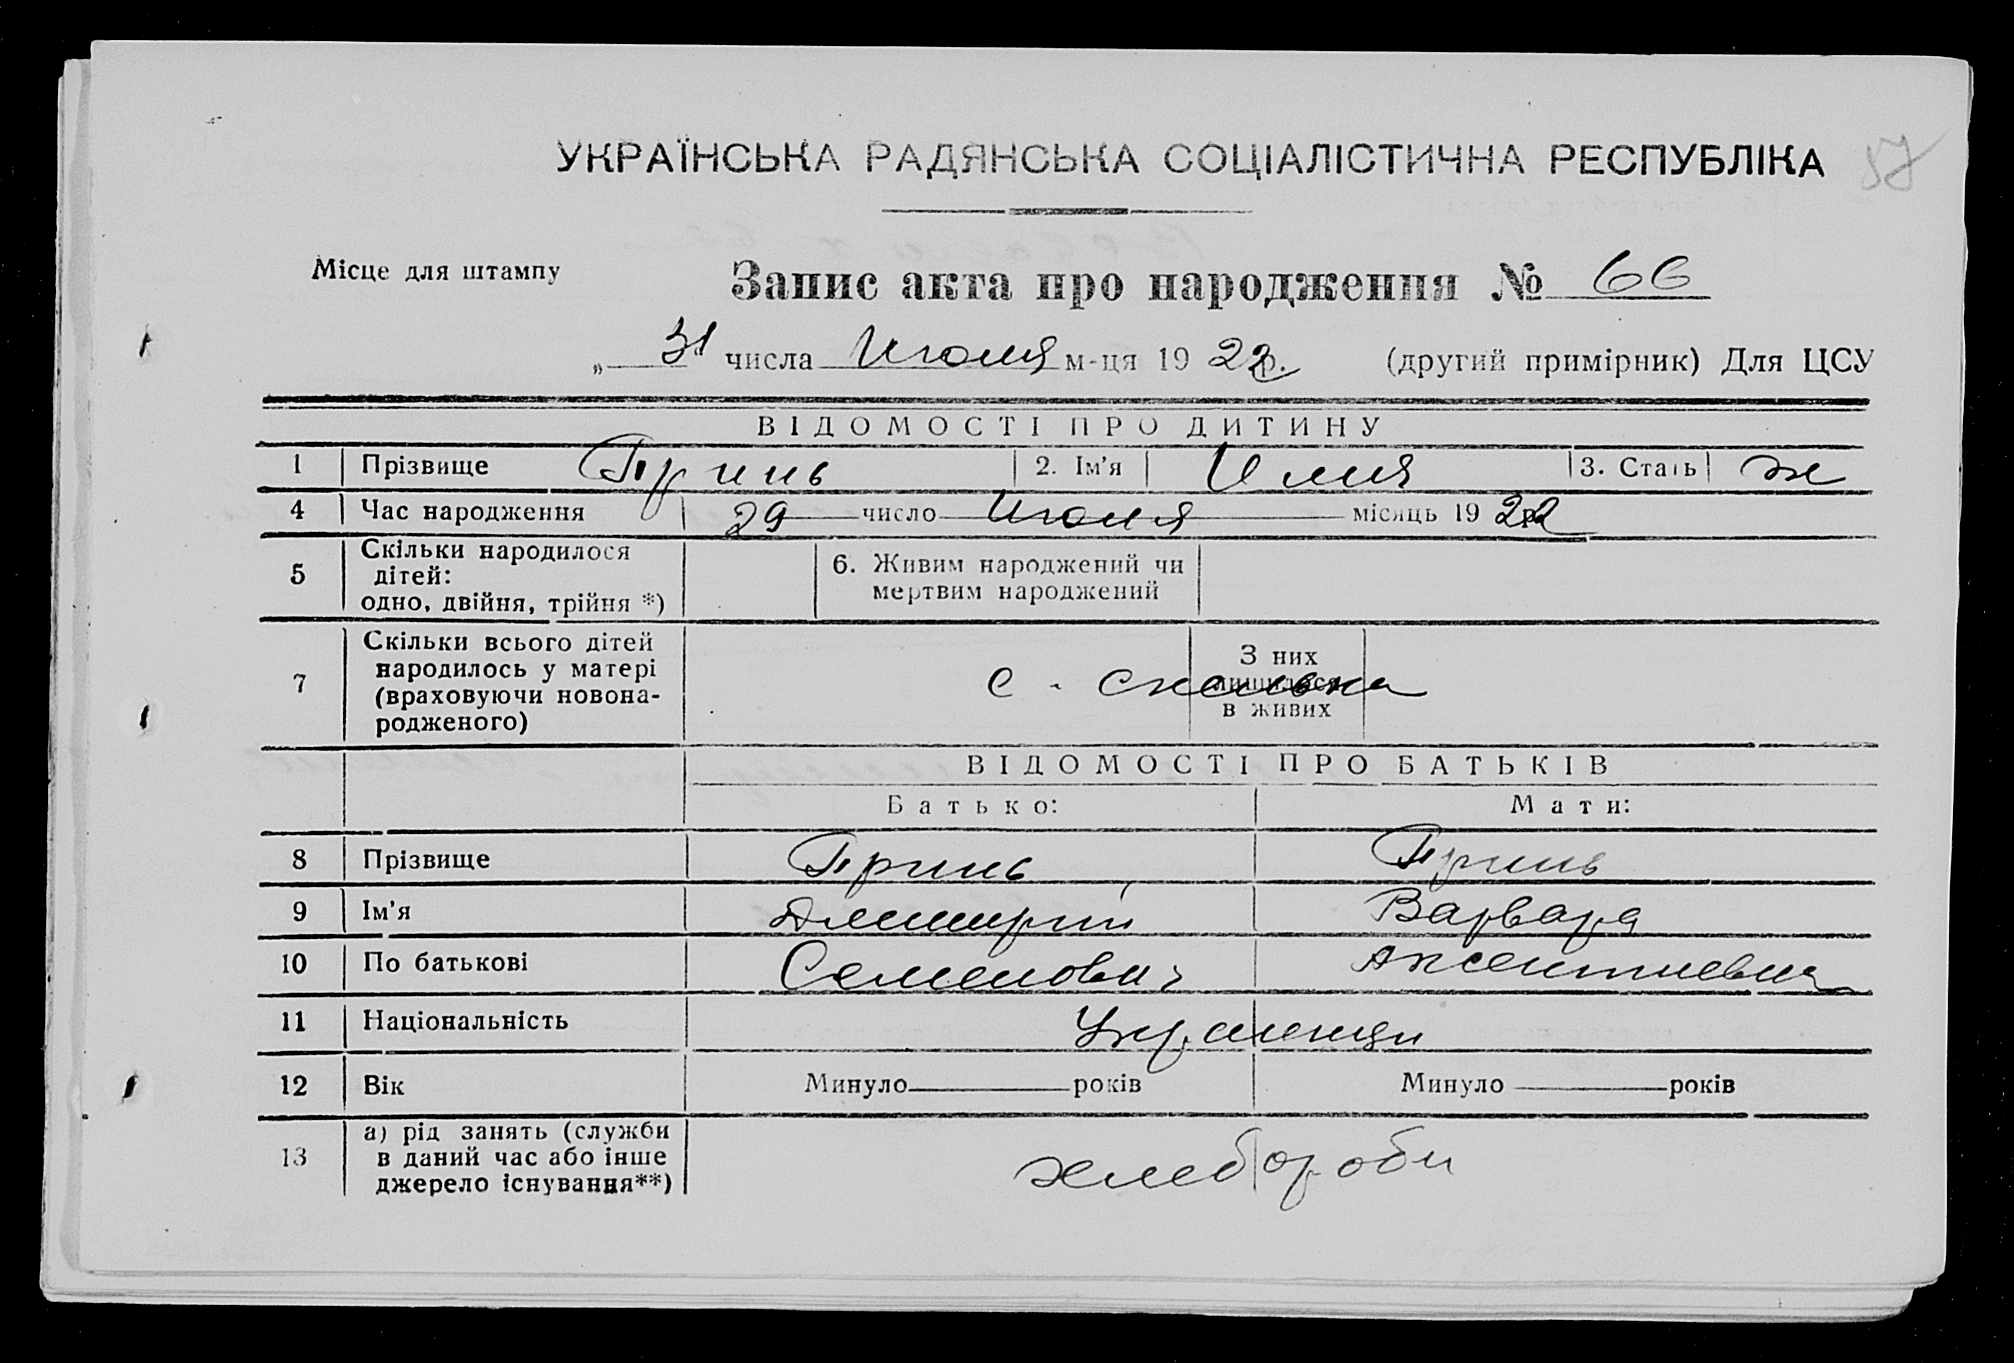 57
УКРАЇНСЬКА РАДЯНСЬКА СОЦІАЛІСТИЧНА РЕСПУБЛІКА
Місце для штампу
Запис акта про народження № 66
„ 31 " числа Июля м-ця 19 22 р. (другий примірник) Для ЦСУ
ВІДОМОСТІ ПРО ДИТИНУ
1 Прізвище Принь 2. Ім'я Илия 3. Стать ж
4 Час народження 29 число Июля місяць 19 22
5 Скільки народилося дітей: одно, двійня, трійня *) 6. Живим народжений чи мертвим народжений
7 Скільки всього дітей народилось у матері (враховуючи новонародженого) З них лишилося в живих
С.
ВІДОМОСТІ ПРО БАТЬКІВ
Батько: Мати:
8 Прізвище Принь Принь
9 Ім'я Дмитрий Варвара
10 По батькові Семенович Аксентиевна
11 Національність Украинци
12 Вік Минуло років Минуло років
13 а) рід занять (служби в даний час або інше джерело існування**) хлебороби